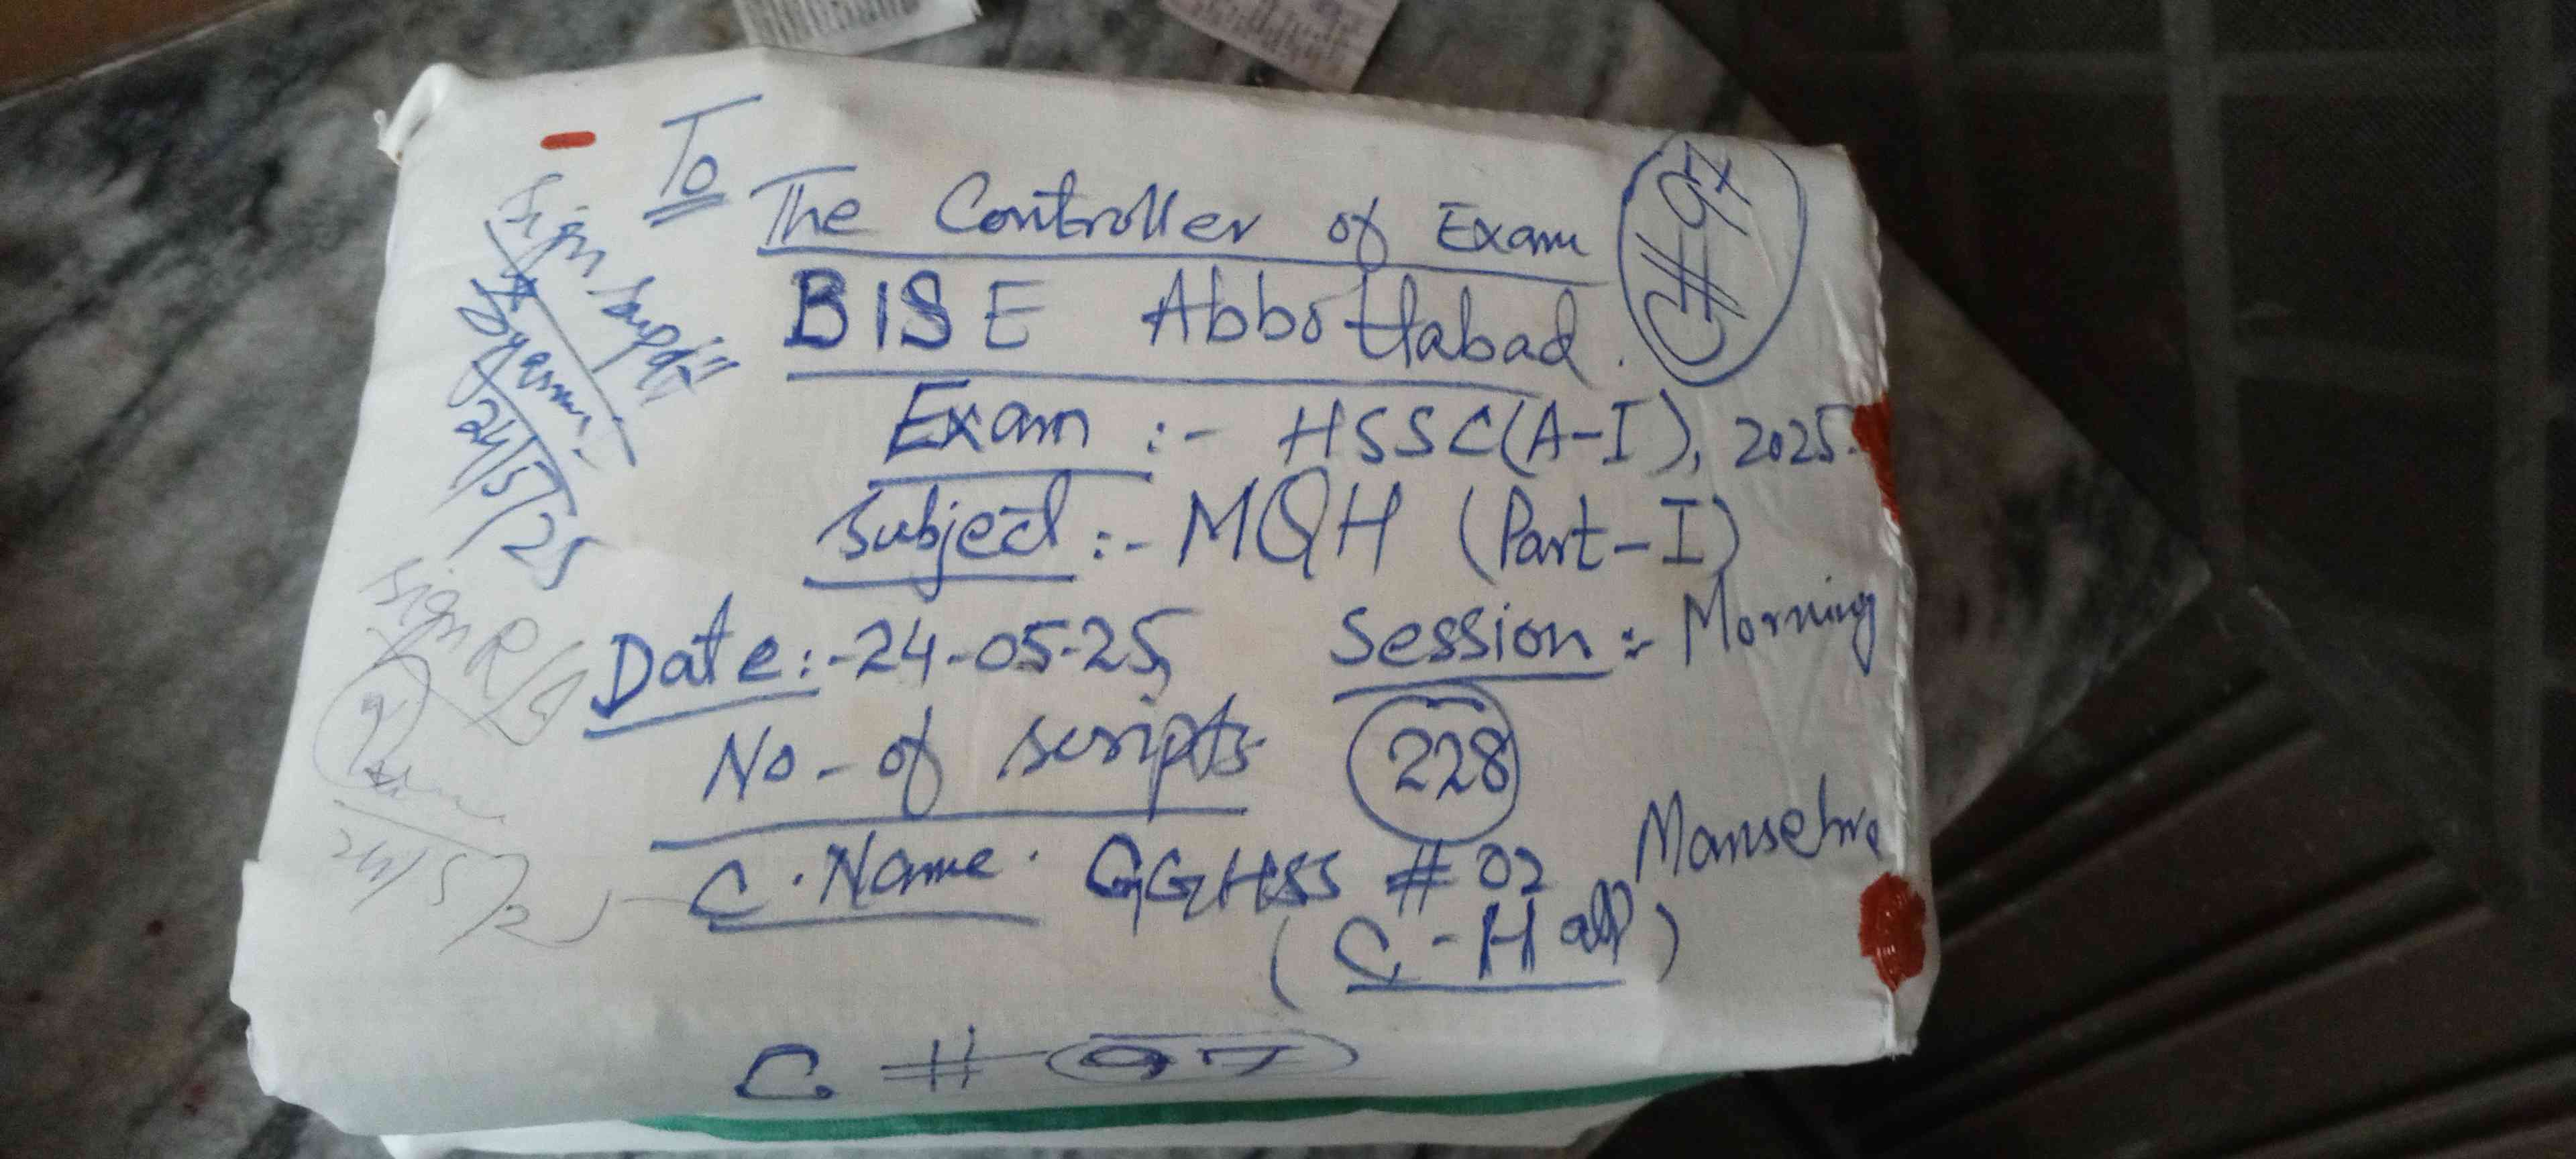 To
The Controller of Exam
C # 97
BISE Abbottabad.
Exam :- HSSC(A-I), 2025.
Subject :- MQH (Part-I)
Date :- 24-05-25, Session :- Morning
No - of scripts 228
C. Name. GGHSS # 02 Mansehra
(C-Hall)
C # 97
Sign Supdtt
24/5/25
Sign R/I
24/5/2